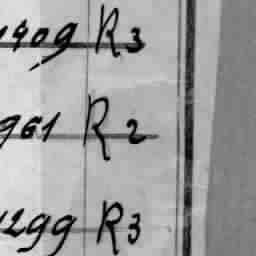 1909 R3
961 R2
1299 R3